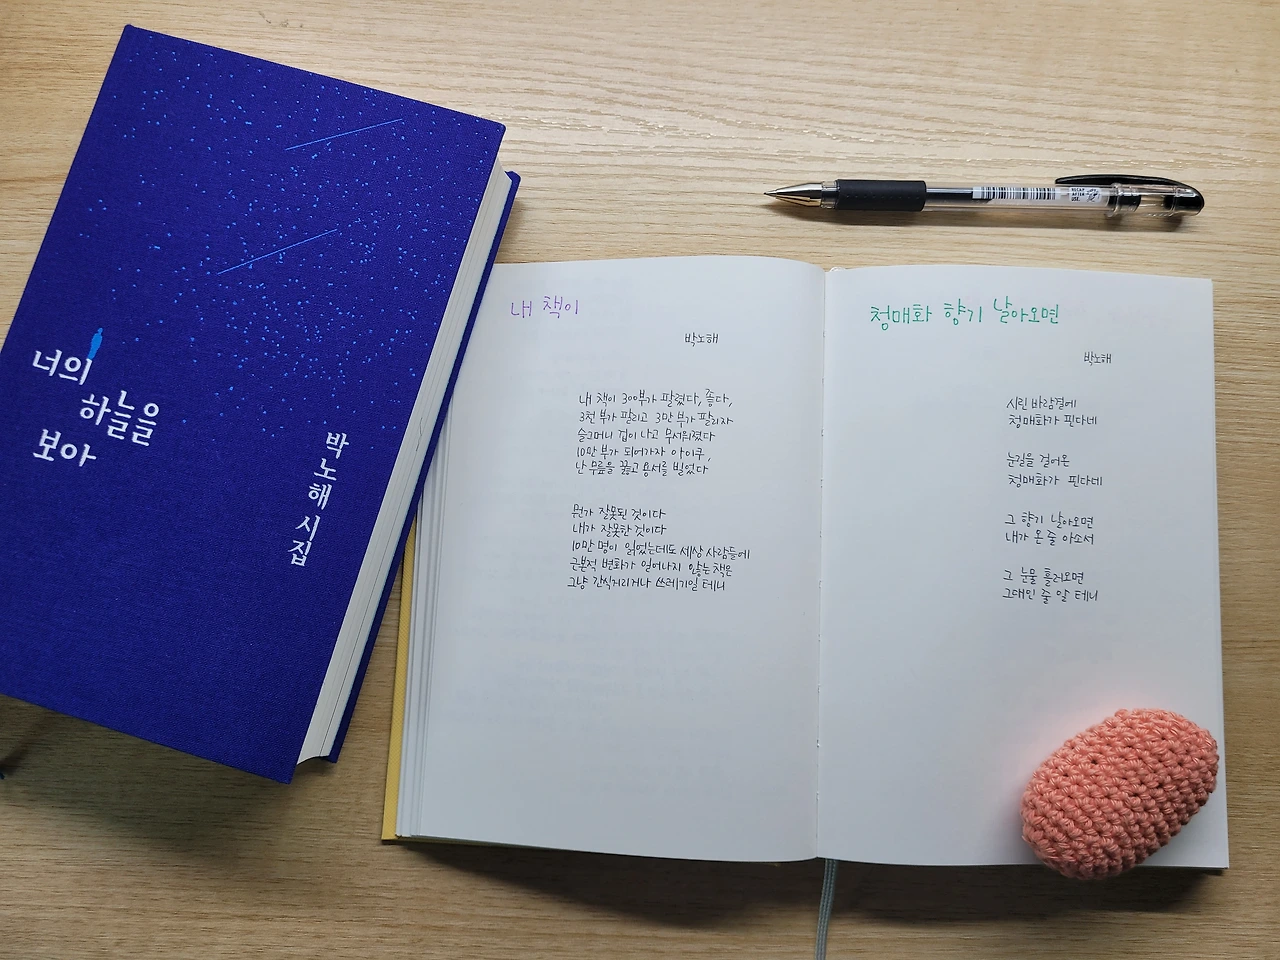 너의
하늘을
보아
박노해 시집
내 책이
박노해
내 책이 300부가 팔렸다, 좋다,
3천 부가 팔리고 3만 부가 팔리자
슬그머니 겁이 나고 무서워졌다
10만 부가 되어가자 아이쿠,
난 무릎을 꿇고 용서를 빌었다
뭔가 잘못된 것이다
내가 잘못한 것이다
10만 명이 읽었는데도 세상 사람들에
근본적 변화가 일어나지 않는 책은
그냥 간식거리거나 쓰레기일 테니
청매화 향기 날아오면
박노해
시린 바람결에
청매화가 핀다네
눈길을 걸어온
청매화가 핀다네
그 향기 날아오면
내가 온 줄 아소서
그 눈물 흘러오면
그대인 줄 알 테니